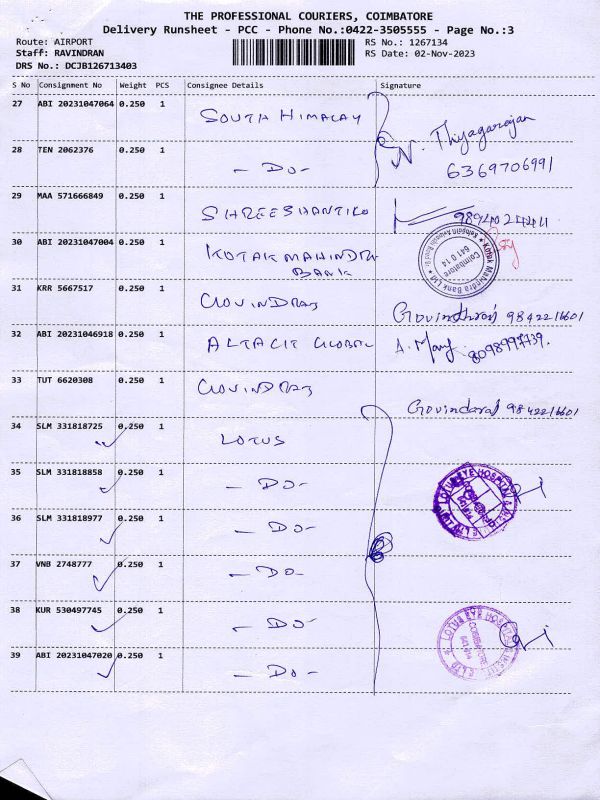 THE PROFESSIONAL COURIERS, COIMBATORE
Delivery Runsheet - PCC - Phone No.:0422-3505555 - Page No.:3
Route: AIRPORT
RS No.: 1267134
Staff: RAVINDRAN
RS Date: 02-Nov-2023
DRS No.: DCJB126713403
S No Consignment No Weight PCS Consignee Details Signature
27 ABI 20231047064 0.250 1 SOUTH HIMALAY N. Thyagarajan
28 TEN 2062376 0.250 1 - DO - 6369706991
29 MAA 571666849 0.250 1 SHREESHANTIKO
30 ABI 20231047004 0.250 1 KOTAK MAHINDRA
BANK
Kotak Mahindra Bank Ltd
Coimbatore
641 014
31 KRR 5667517 0.250 1 GOVINDRAJ 9842216601
32 ABI 20231046918 0.250 1 ALTACIT GLOBAL 8098997739.
33 TUT 6620308 0.250 1 GOVINDRAJ Govindaraj 9842216601
34 SLM 331818725 0.250 1 LOTUS
35 SLM 331818858 0.250 1 - DO -
LOTUS EYE HOSPITAL
36 SLM 331818977 0.250 1 - DO -
37 VNB 2748777 0.250 1 - DO -
38 KUR 530497745 0.250 1 - DO -
LOTUS EYE HOSPITAL
COIMBATORE
39 ABI 20231047020 0.250 1 - DO -